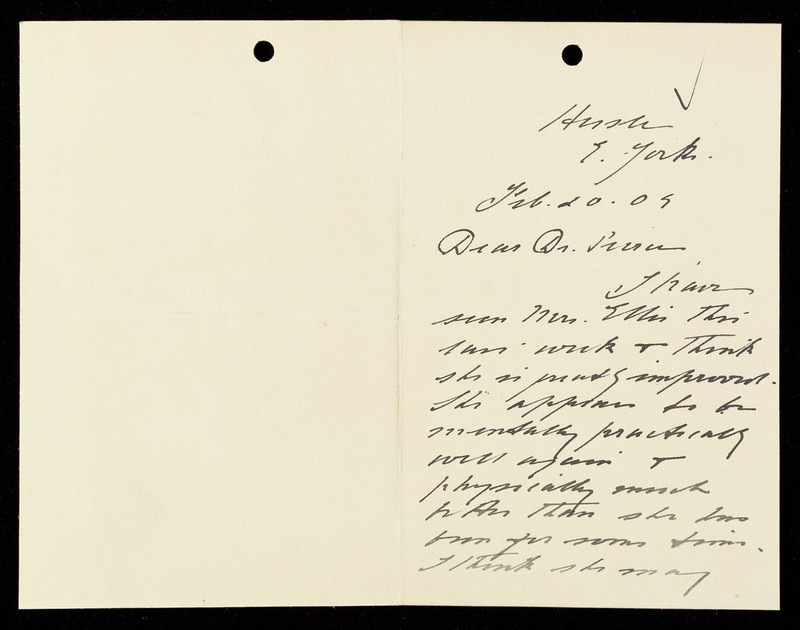 Hessle
E. Yorks.
Feb. 20. 09
Dear Dr. Pierce
I have
seen Mrs. Ellis this
last week & think
she is greatly improved.
She appears to be
mentally practically
well again &
physically much
better than she has
been for some time.
I think she may